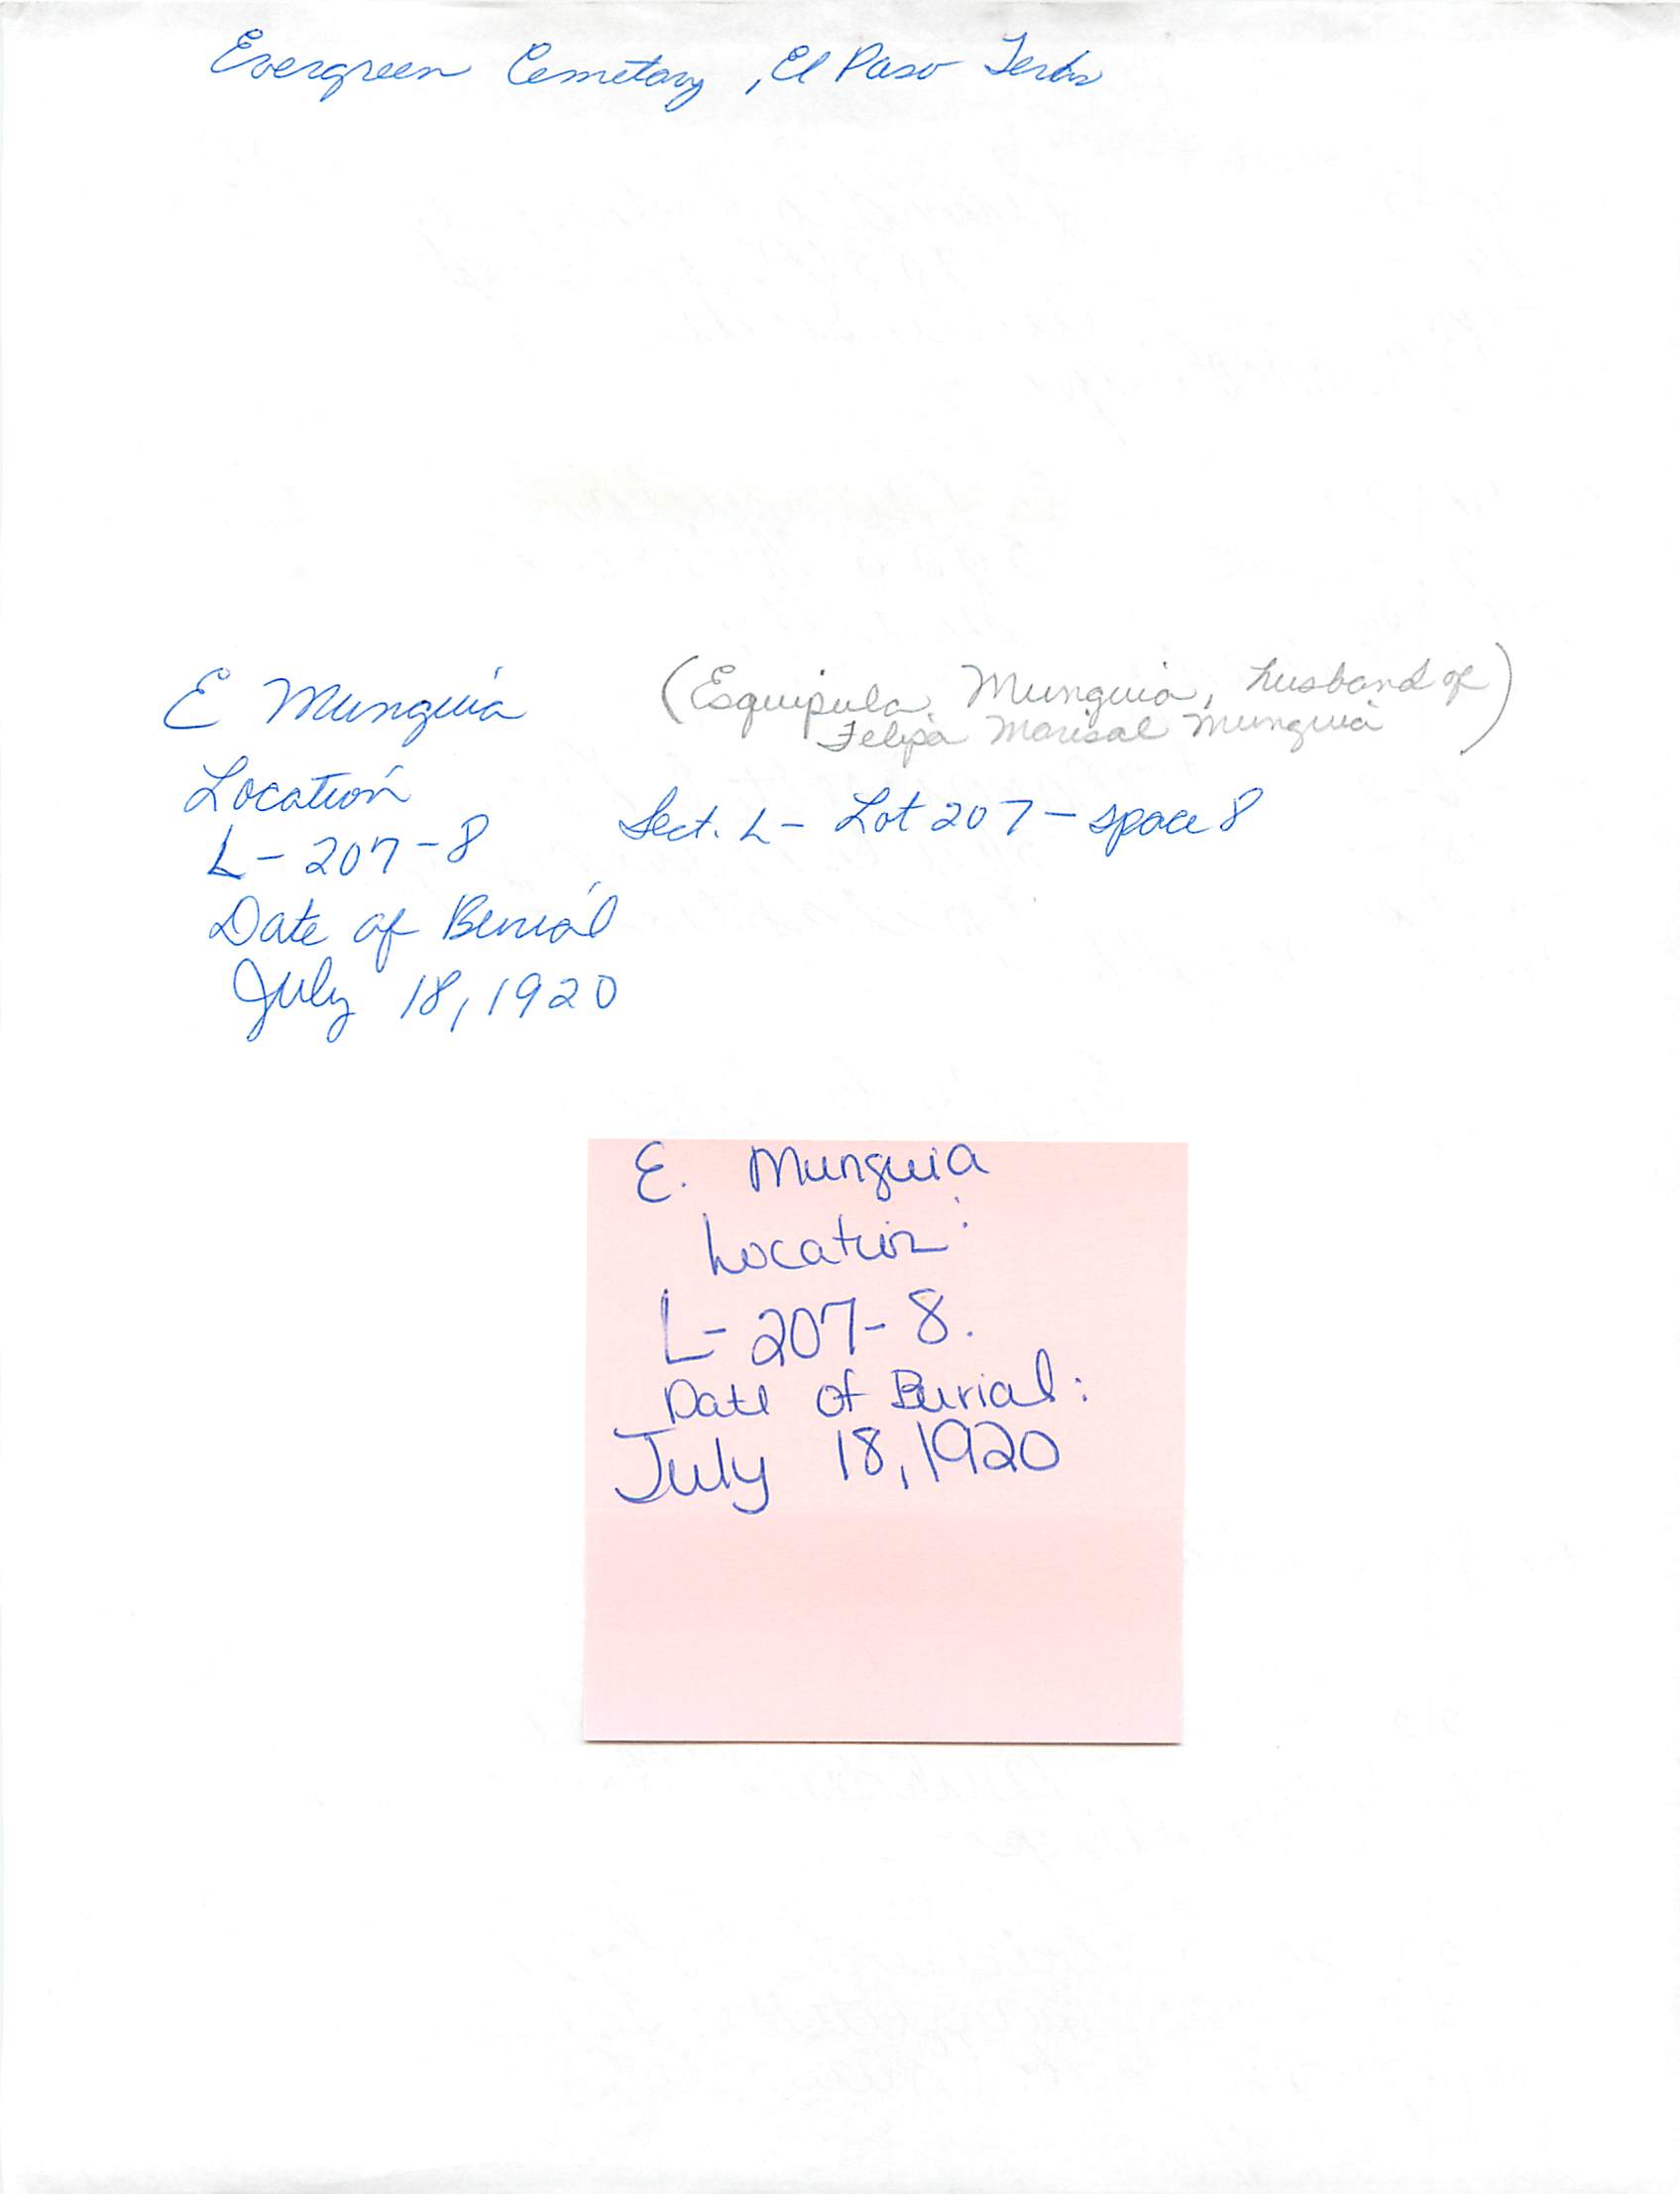 Evergreen Cemetary, El Paso Texas
E Munguia
(Esquipula Munguia, husband of
Felipa Marisal Munguia)
Location
L-207-8
Sect. L - Lot 207 - space 8
Date of Burial
July 18, 1920
E. Munguia
Location:
L-207-8.
Date of Burial:
July 18, 1920